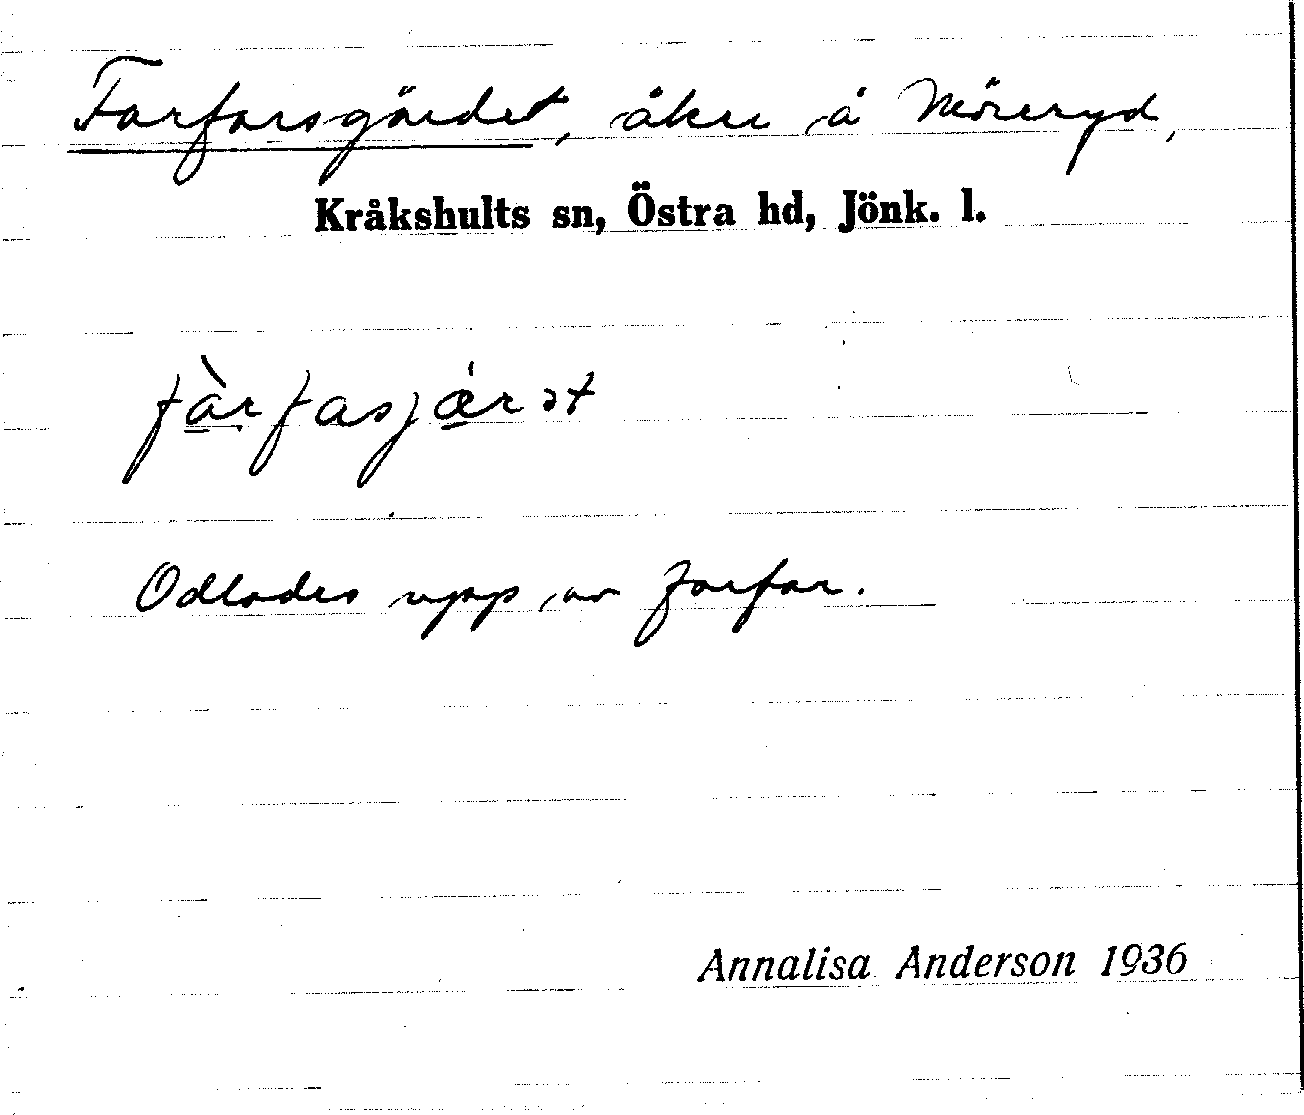 Farfarsgärdet, åker å Möreryd,
Kråkshults sn, Östra hd, Jönk. l.
fàrfasjǽrət
Odlades upp av farfar.
Annalisa Anderson 1936